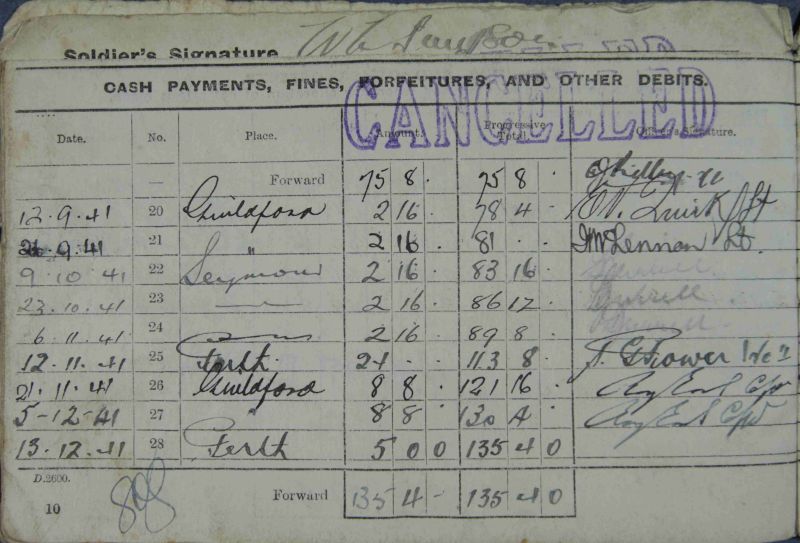 Soldier's Signature
CASH PAYMENTS, FINES, FORFEITURES, AND OTHER DEBITS.
CANCELLED
Date. No. Place. Amount. Progressive Total. Officer's Signature.
— Forward 75 8 . 75 8 .
12.9.41 20 Guildford 2 16 . 78 4 - Lt
9.41 21 " 2 16 . 81 . . McLennan Lt.
9.10.41 22 Seymour 2 16 . 83 16 .
23.10.41 23 — 2 16 . 86 12 .
6.11.41 24 — 2 16 . 89 8 .
12.11.41 25 Perth 24 - . 113 8 .
21.11.41 26 Guildford 8 8 . 121 16 .
5-12-41 27 " 8 8 . 130 4 .
13.12.41 28 Perth 5 0 0 135 4 0
D.2600. Forward 135 4 - 135 4 0
10